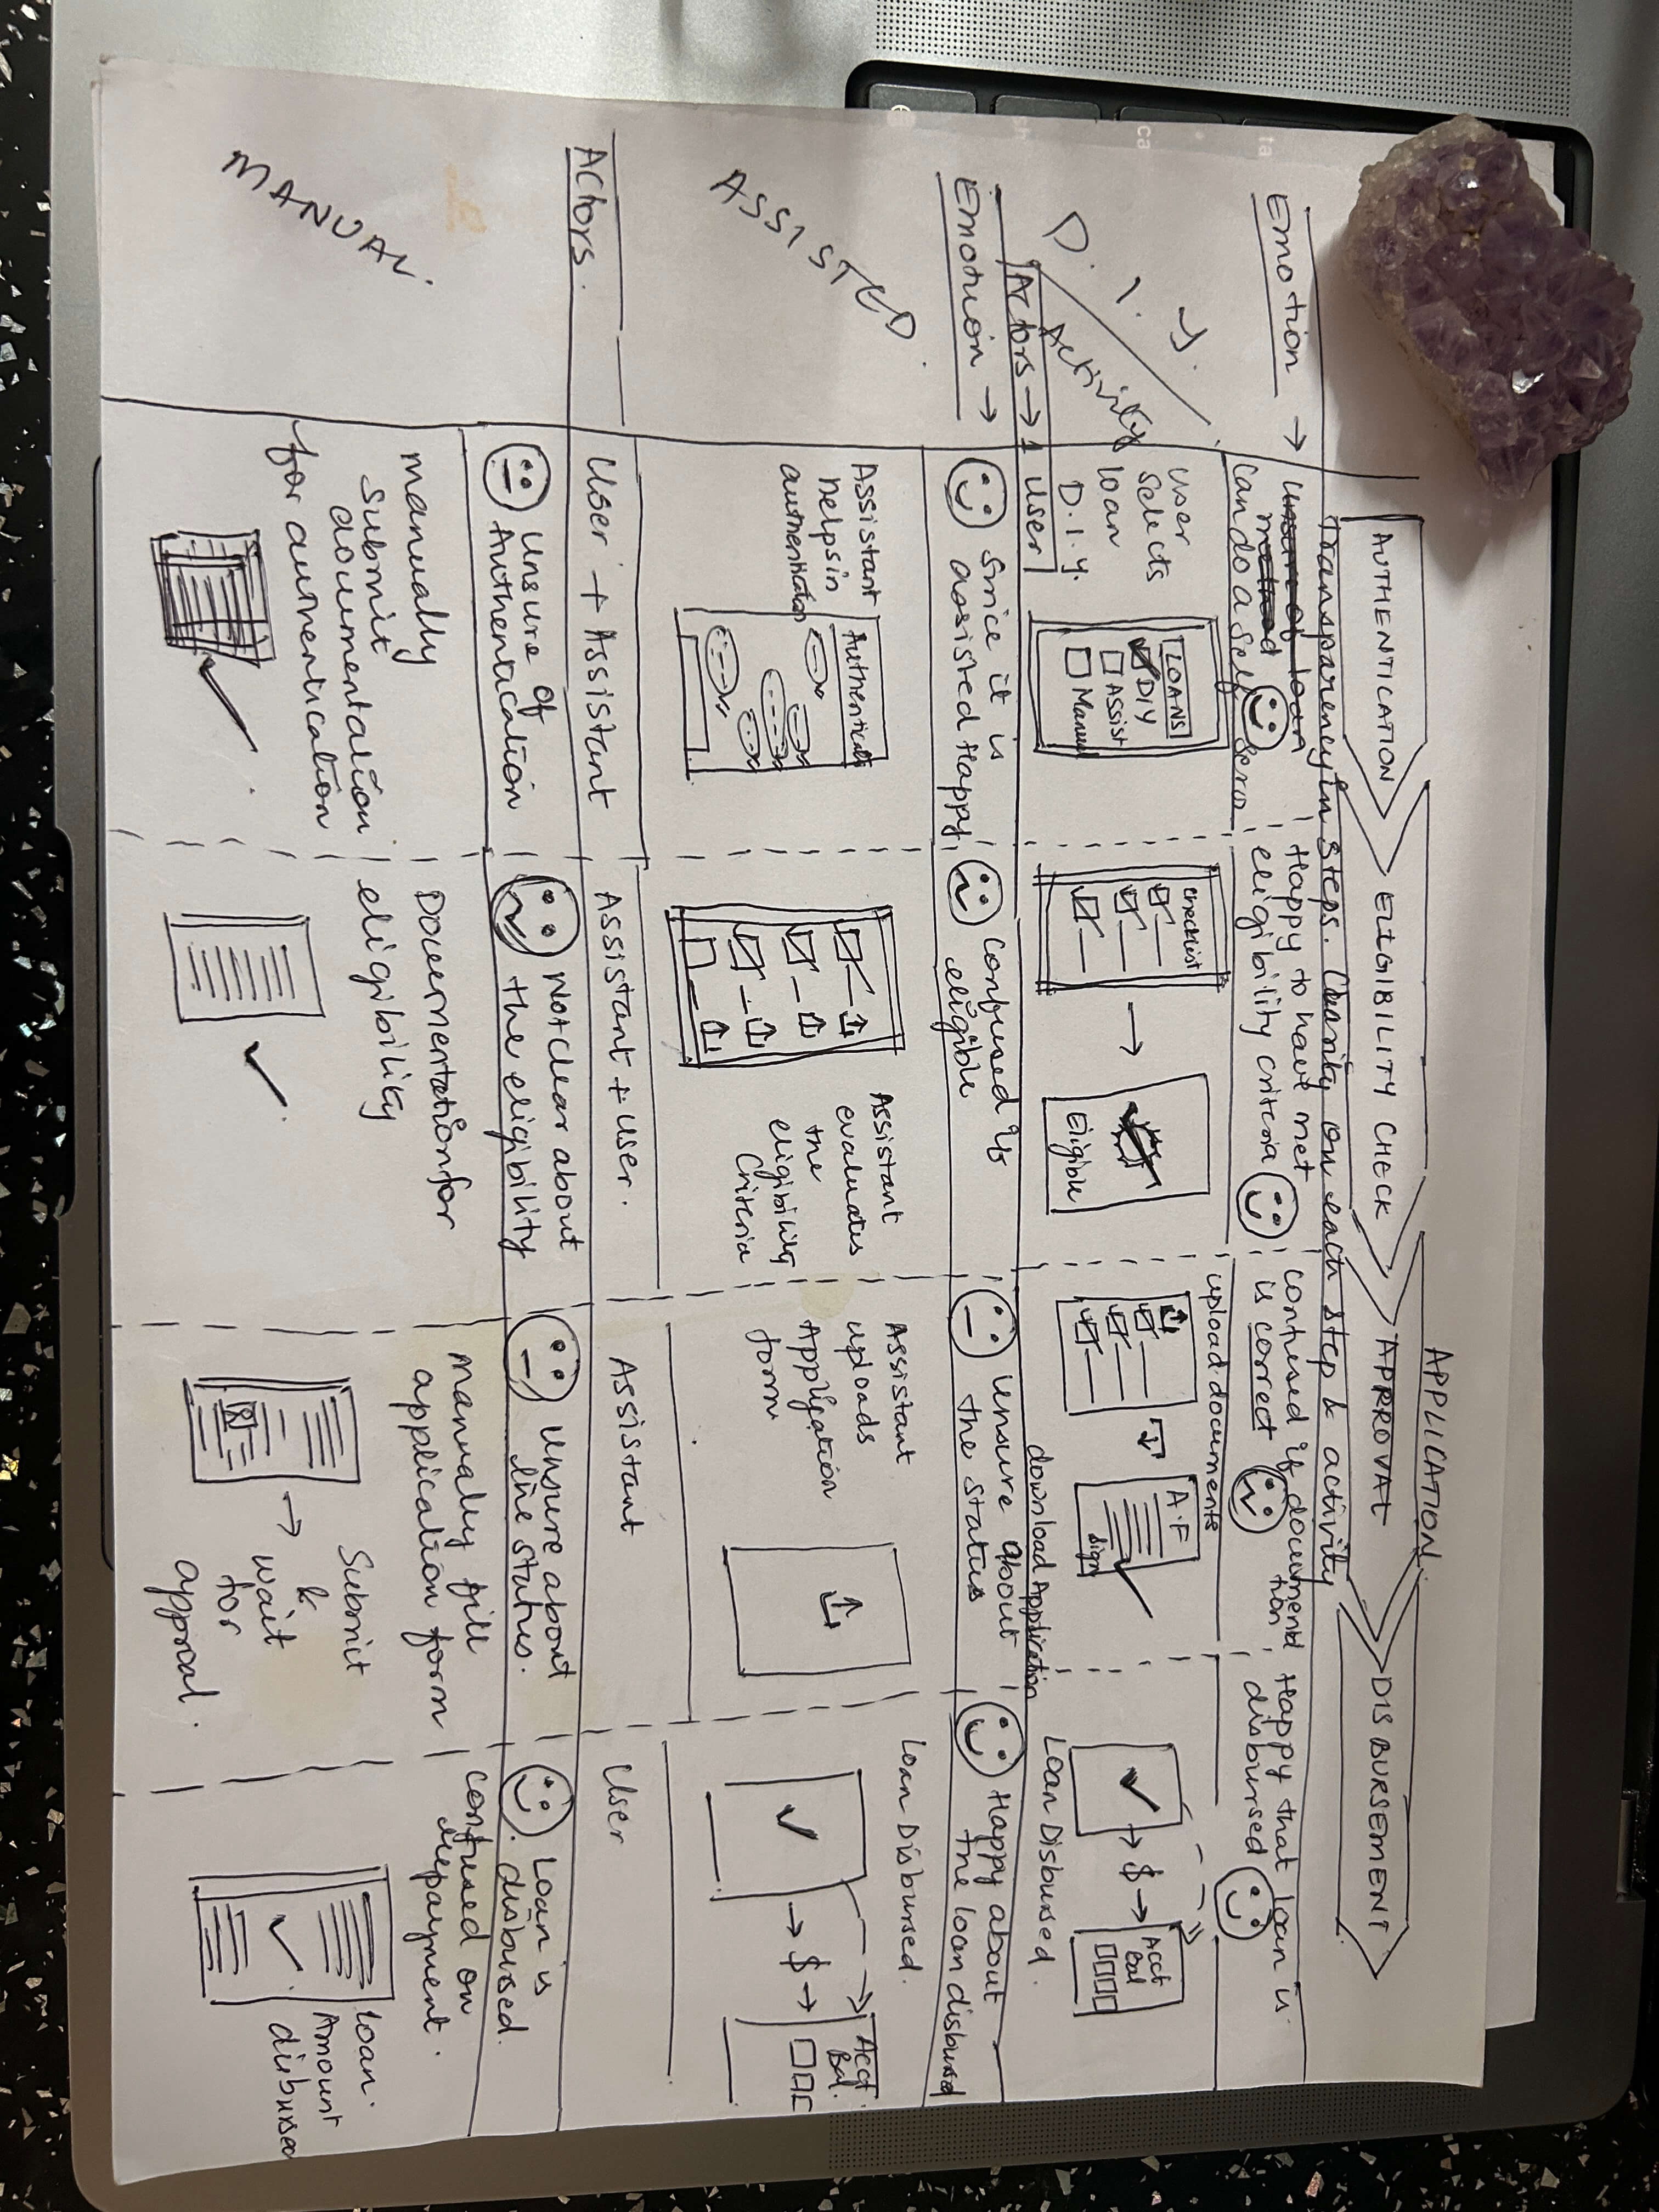 APPLICATION
AUTHENTICATION
ELIGIBILITY CHECK
APPROVAL
DISBURSEMENT
Transparency in steps. Clarity on each step & activity
Emotion →
can do a self serv
Happy to have met
eligibility criteria
confused if documenta
tion
is correct
Happy that loan is
disbursed
D. I. Y.
Activity
User
selects
loan
D.I.Y.
LOANS
DIY
Assist
Manual
Checklist
→
Eligible
upload documents
A.F
sign
download Application
→ $ →
Acct
Bal
Loan Disbursed.
Actors → 1 User
Emotion →
Since it is
assisted Happy
Confused if
eligible
Unsure about
the status
Happy about
the loan disbursed
ASSISTED.
Assistant
helps in
authentication
Authentication
Assistant
evaluates
the
eligibility
Criteria
Assistant
uploads
Application
form
Loan Disbursed.
→ $ →
Acct
Bal.
Actors.
User + Assistant
Assistant + User.
Assistant
User
Unsure of
Authentication
Not clear about
the eligibility
Unsure about
the status.
Loan is
disbursed.
MANUAL.
manually
submit
documentation
for authentication
Documentation for
eligibility
manually fill
application form
→
Submit
&
wait
for
approval.
confused on
repayment.
loan.
Amount
disbursed